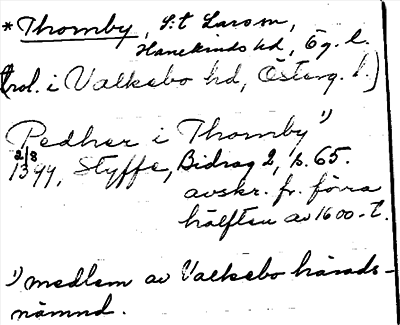 *Thomby, S:t Larsm,
Hanekinds hd, Ög. l.
(trol. i Valkebo hd, Österg. l.)
Pedher i Thomby 1)
2/8
1399, Styffe, Bidrag 2, s. 65.
avskr. fr. förra
hälften av 1600-t.
1) medlem av Valkebo härads-
nämnd.